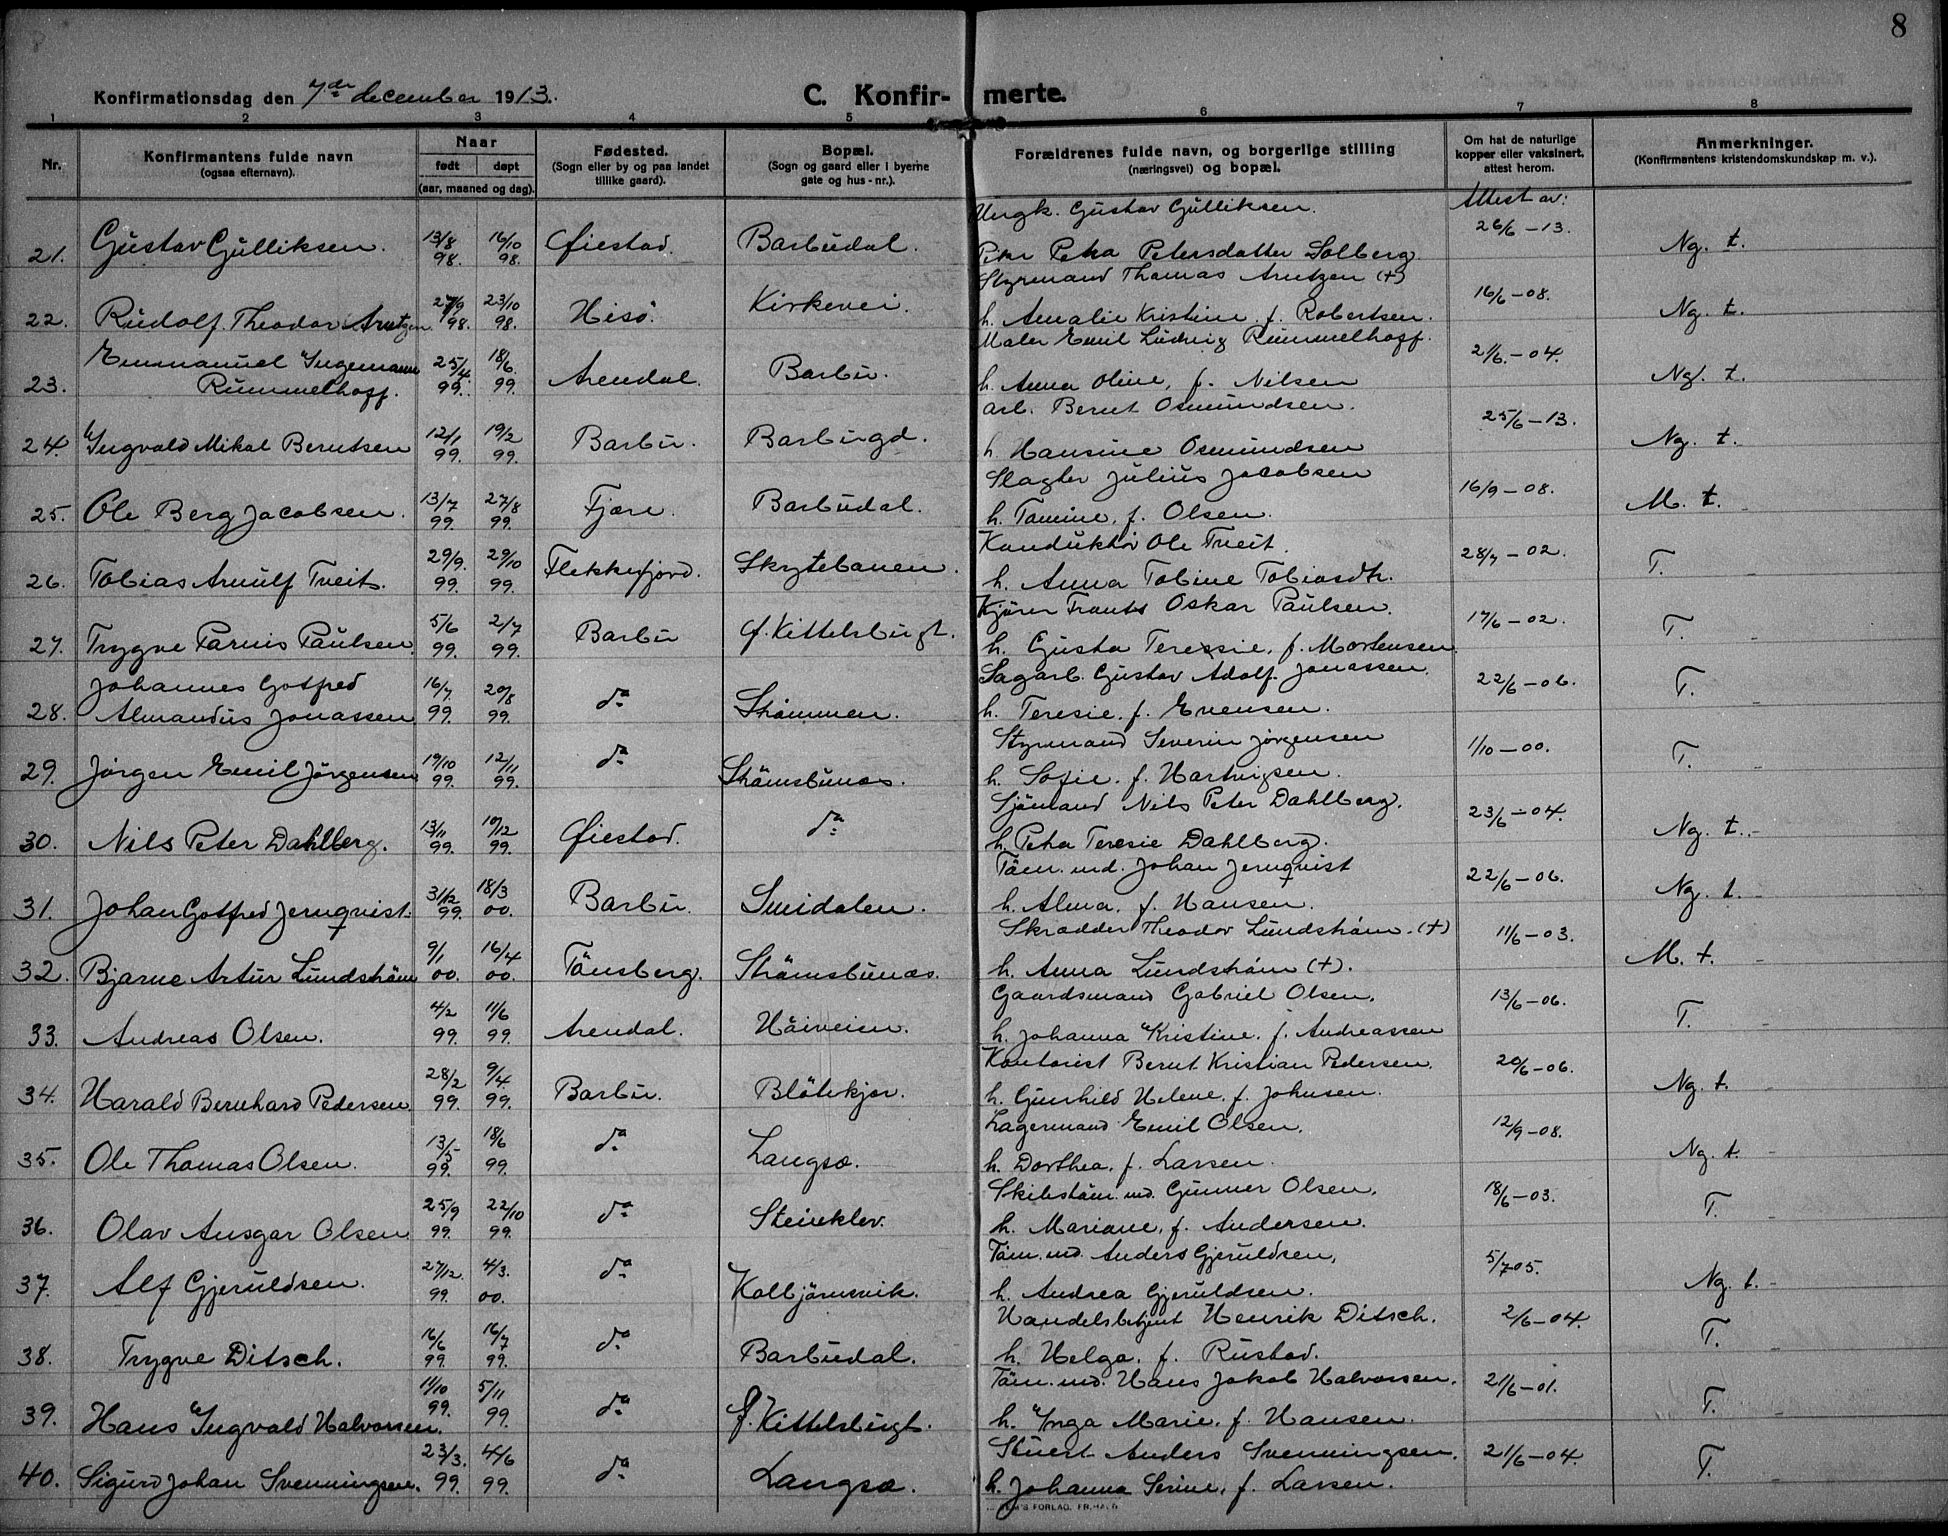 8
Konfirmationsdag den 7de december 1913.
C. Konfirmerte.
1 2 3 4 5 6 7 8
Nr.
Konfirmantens fulde navn
(ogsaa efternavn).
Naar
født døpt
(aar, maaned og dag).
Fødested.
(Sogn eller by og paa landet
tillike gaard).
Bopæl.
(Sogn og gaard eller i byerne
gate og hus-nr.).
Forældrenes fulde navn, og borgerlige stilling
(næringsvei) og bopæl.
Om hat de naturlige
kopper eller vaksinert,
attest herom.
Anmerkninger.
(Konfirmantens kristendomskundskap m. v.).
Attest av:
Ungk. Gustav Gulliksen.
21. Gustav Gulliksen. 13/8 98. 16/10 98. Øiestad. Barbudal. Petra Petersdatter Solberg 26/6-13. Ng. t.
Styrmand Thomas Arntzen (+)
22. Rudolf Theodor Arntzen 27/9 98. 23/10 98. Hisö. Kirkevei. h. Amalie Kristine f. Robertsen. 16/6-08. Ng. t.
Maler Emil Ludvig Rummelhoff.
23. Emmanuel Ingemann Rummelhoff. 25/4 99. 18/6. 99. Arendal. Barbu. h. Anna Oline, f. Nilsen 21/6-04. Ng. t.
arb. Bernt Osmundsen.
24. Ingvald Mikal Berntsen 12/1 99. 19/2 99. Barbu. Barbugd. h. Hansine Osmundsen 25/6-13. Ng. t.
Slagter Julius Jacobsen
25. Ole Berg Jacobsen. 13/7 99. 27/8 99. Fjære. Barbudal. h. Tomine, f. Olsen. 16/9-08. M. t.
Konduktör Ole Tveit.
26. Tobias Arnulf Tveit. 29/9. 99. 29/10 99. Flekkefjord. Skytebanen. h. Anna Tobine Tobiasdtr. 28/7-02. T.
Kjörer Frants Oskar Paulsen.
27. Trygve Parnis Paulsen. 5/6 99. 2/7 99. Barbu f. Kittelsbugt. h. Gusta Teressie, f. Mortensen. 17/6-02. T.
Sagarb. Gustav Adolf Jonassen.
28. Johannes Gotfred Almandus Jonassen 16/7 99. 20/8 99. do Strömmen. h. Teresie, f. Evensen. 22/6-06. T.
Styrmand Severin Jörgensen
29. Jörgen Emil Jörgensen 19/10 99. 12/11 99. do Strömsbunes. h. Sofie, f. Hartvigsen. 1/10-00. T.
Sjömand Nils Peter Dahlberg.
30. Nils Peter Dahlberg. 13/11 99. 10/12 99. Øiestad. do h. Petra Teresie Dahlberg. 23/6-04. Ng. t.
Töm. md. Johan Jernqvist
31. Johan Gotfred Jernqvist. 31/12 99. 18/3 00. Barbu. Smidalen. h. Alma, f. Hansen. 22/6-06. Ng. t.
Skrædder Theodor Lundström. (+)
32. Bjarne Artur Lundström 9/1 00. 16/4 00. Tönsberg. Strömsbunes. h. Anna Lundström (+). 11/6-03. M. t.
Gaardsmand Gabriel Olsen.
33. Andreas Olsen. 4/2 99. 11/6 99. Arendal. Höiveien. h. Johanna Kristine, f. Andreassen 13/6-06. T.
Kontorist Bernt Kristian Pedersen.
34. Harald Bernhard Pedersen. 28/2 99. 9/4 99. Barbu. Blötekjær. h. Gunhild Helene, f. Johnsen. 20/6-06. Ng. t.
Lagermand Emil Olsen.
35. Ole Thomas Olsen. 13/5 99. 18/6 99. do Langsæ. h. Dorthea, f. Larsen. 12/9-08. Ng. t.
Skibstöm. md. Gunner Olsen.
36. Olav Ansgar Olsen 25/9 99. 22/10 99. do Steinklev. h. Mariane, f. Andersen. 18/6-03. T.
Töm. md. Anders Gjeruldsen,
37. Alf Gjeruldsen. 27/12. 99. 4/3. 00. do Kolbjörnsvik. h. Andrea Gjeruldsen. 5/7 05. Ng. t.
Handelsbetjent Henrik Ditsch.
38. Trygve Ditsch. 16/6 99. 16/7 99. do Barbudal. h. Helga, f. Rustad. 2/6-04. T.
Töm. md. Hans Jakob Halvorsen.
39. Hans Ingvald Halvorsen. 11/10 99. 5/11 99. do f. Kittelsbugt. h. Inga Marie, f. Hansen. 21/6-01. T.
Stuert Anders Svenningsen.
40. Sigurd Johan Svenningsen. 23/3. 99. 4/6 99. do Langsæ. h. Johanna Serine, f. Larsen. 21/6-04. T.
FORLAG, FR.HALD